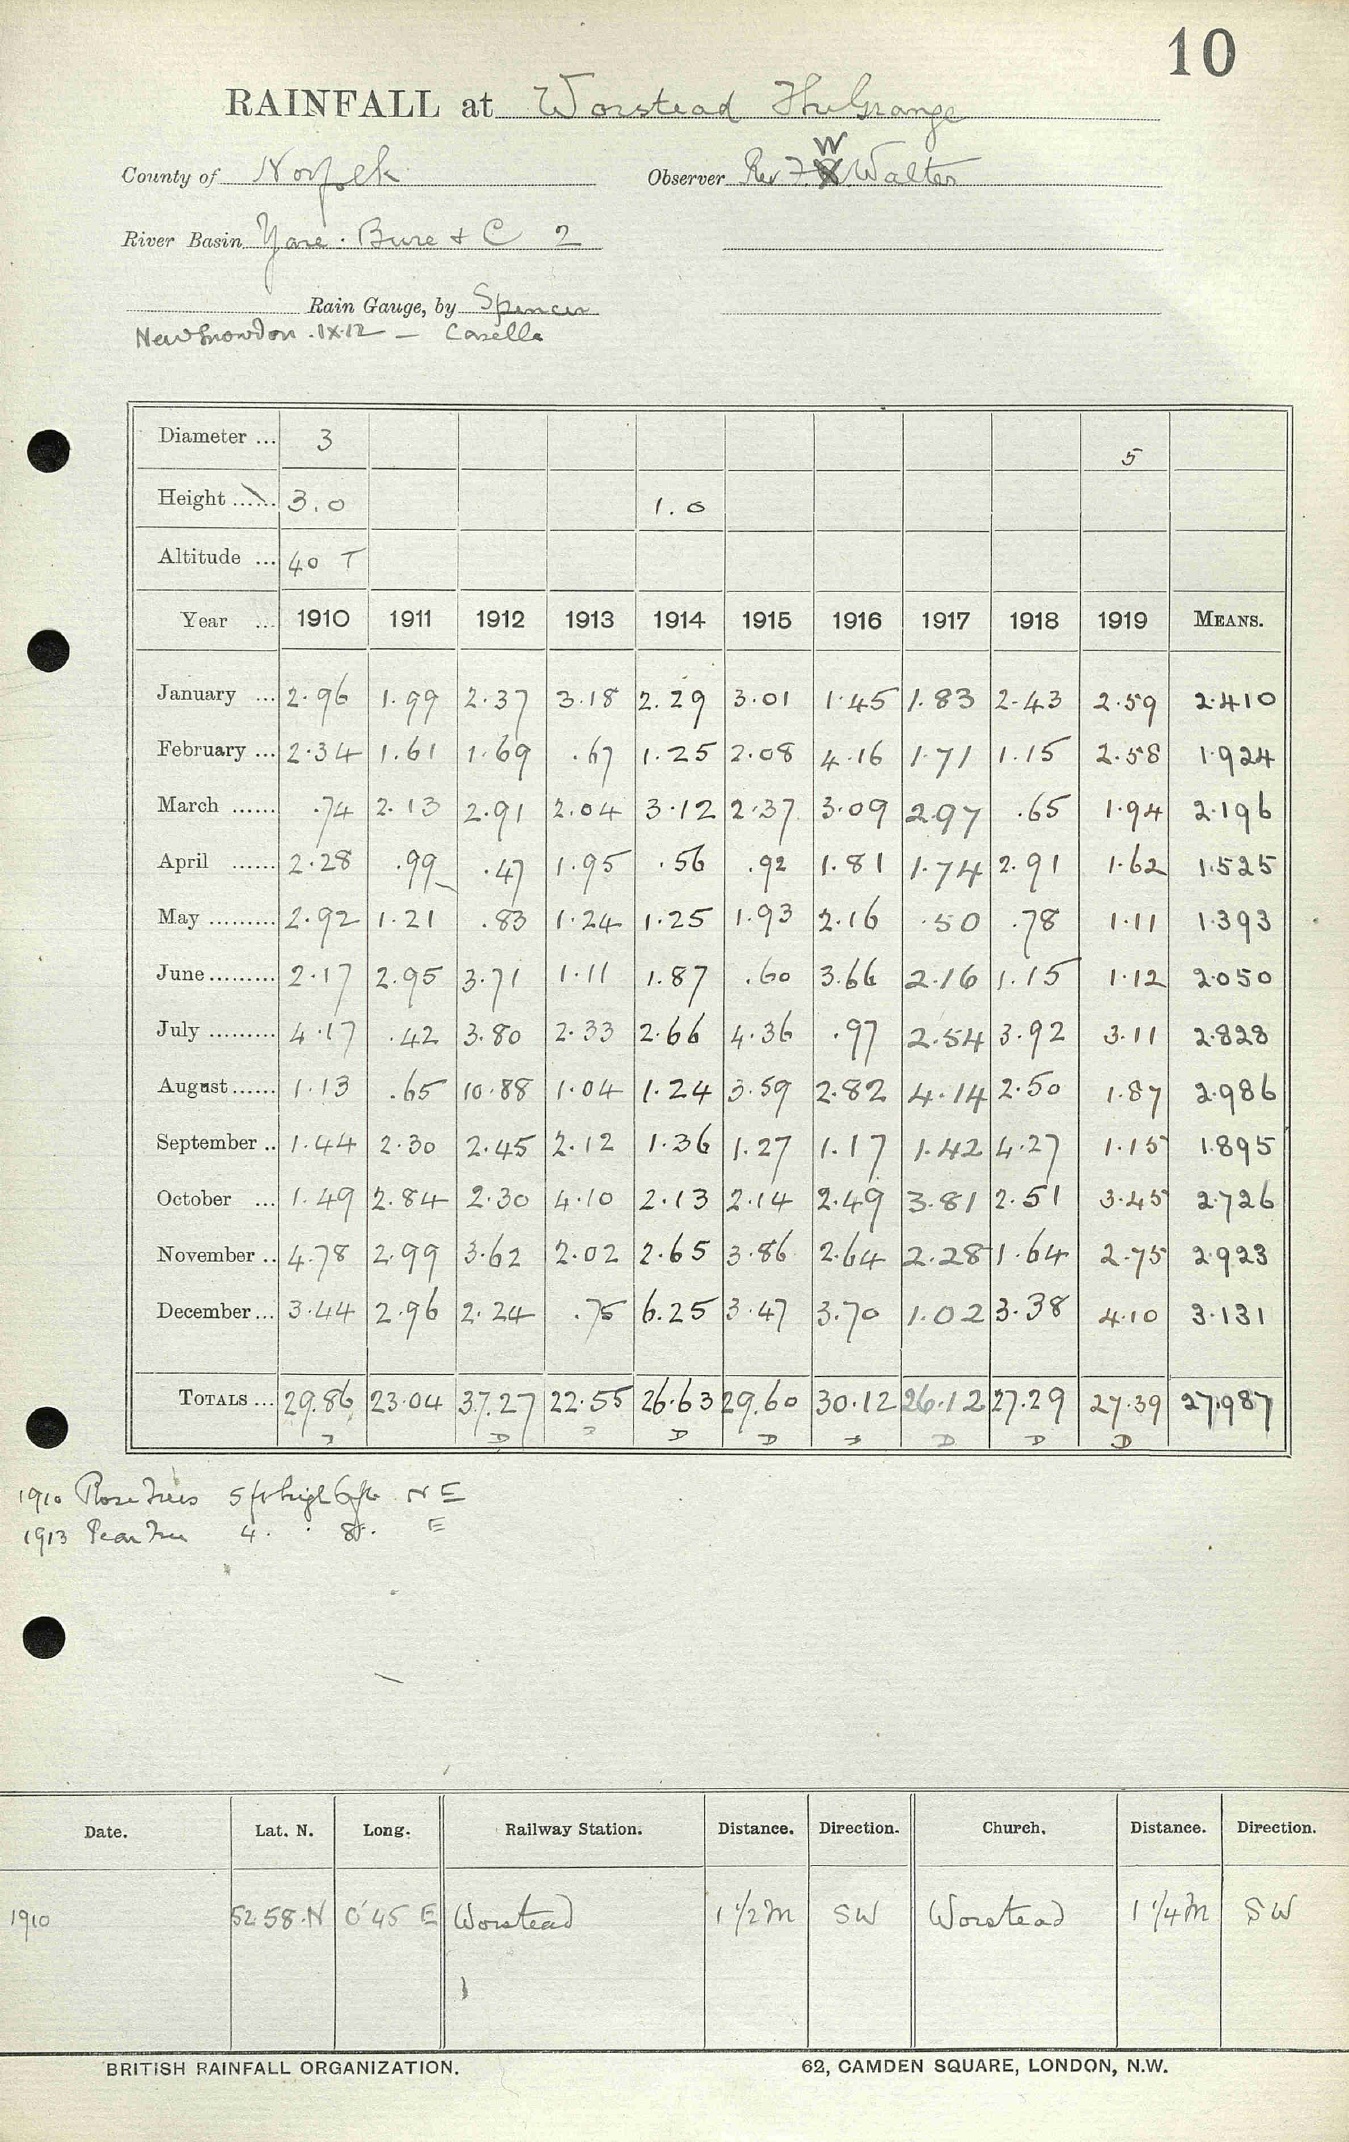 10
RAINFALL at Worstead The Grange
County of Norfolk Observer Rev F. W Walter
River Basin Yare. Bure & C 2
Rain Gauge, by Spencer
New Snowdon. IX.12 — Casella
Diameter ... 3 5
Height ...... 3.0 1.0
Altitude ... 40 T
Year ... 1910 1911 1912 1913 1914 1915 1916 1917 1918 1919 MEANS.
January ... 2.96 1.99 2.37 3.18 2.29 3.01 1.45 1.83 2.43 2.59 2.410
February ... 2.34 1.61 1.69 .67 1.25 2.08 4.16 1.71 1.15 2.58 1.924
March ...... .74 2.13 2.91 2.04 3.12 2.37 3.09 2.97 .65 1.94 2.196
April ...... 2.28 .99 .47 1.95 .56 .92 1.81 1.74 2.91 1.62 1.525
May ......... 2.92 1.21 .83 1.24 1.25 1.93 2.16 .50 .78 1.11 1.393
June ......... 2.17 2.95 3.71 1.11 1.87 .60 3.66 2.16 1.15 1.12 2.050
July ......... 4.17 .42 3.80 2.33 2.66 4.36 .97 2.54 3.92 3.11 2.828
August ...... 1.13 .65 10.88 1.04 1.24 3.59 2.82 4.14 2.50 1.87 2.986
September .. 1.44 2.30 2.45 2.12 1.36 1.27 1.17 1.42 4.27 1.15 1.895
October ... 1.49 2.84 2.30 4.10 2.13 2.14 2.49 3.81 2.51 3.45 2.726
November .. 4.78 2.99 3.62 2.02 2.65 3.86 2.64 2.28 1.64 2.75 2.923
December ... 3.44 2.96 2.24 .75 6.25 3.47 3.70 1.02 3.38 4.10 3.131
TOTALS ... 29.86 23.04 37.27 22.55 26.63 29.60 30.12 26.12 27.29 27.39 27.987
D D D D D D
1910 Rose Trees 5 ft high 6 ft N E
1913 Pear Tree 4 . . 8 ft. E
Date. Lat. N. Long. Railway Station. Distance. Direction. Church. Distance. Direction.
1910 52 58.N 0°45 E Worstead 1 1/2 M SW Worstead 1 1/4 M SW
BRITISH RAINFALL ORGANIZATION. 62, CAMDEN SQUARE, LONDON, N.W.